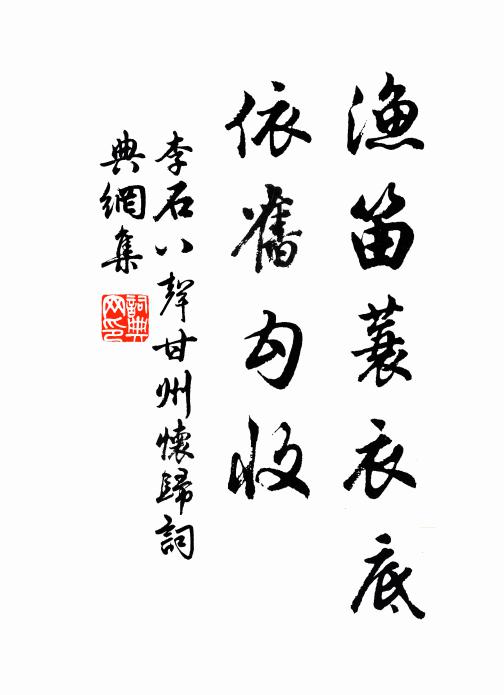 漁笛蓑衣底
依舊勾收
李石八聲甘州懷歸詞
典網集
詞典网印